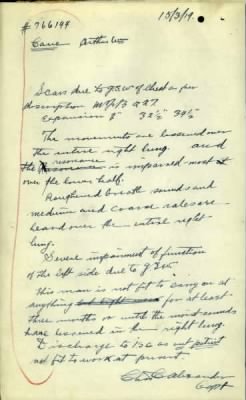 # 766194
15/3/19.
Cane Arthur Wm
Scars due to G.S.W of Chest as per
description M.F.B 227
Expansion 2" 32½" 34½"
The movements are lessened over
the entire right lung. and
the resonance is impaired most
over the lower half.
Roughened breath sounds and
medium and coarse rales are
heard over the entire right
lung.
Severe impairment of function
of the left side due to G.S.W.
This man is not fit to carry on at
anything for at least
three months or until the moist sounds
have lessened in the right lung.
Discharge to 13c as out patient
not fit to work at present.
Capt